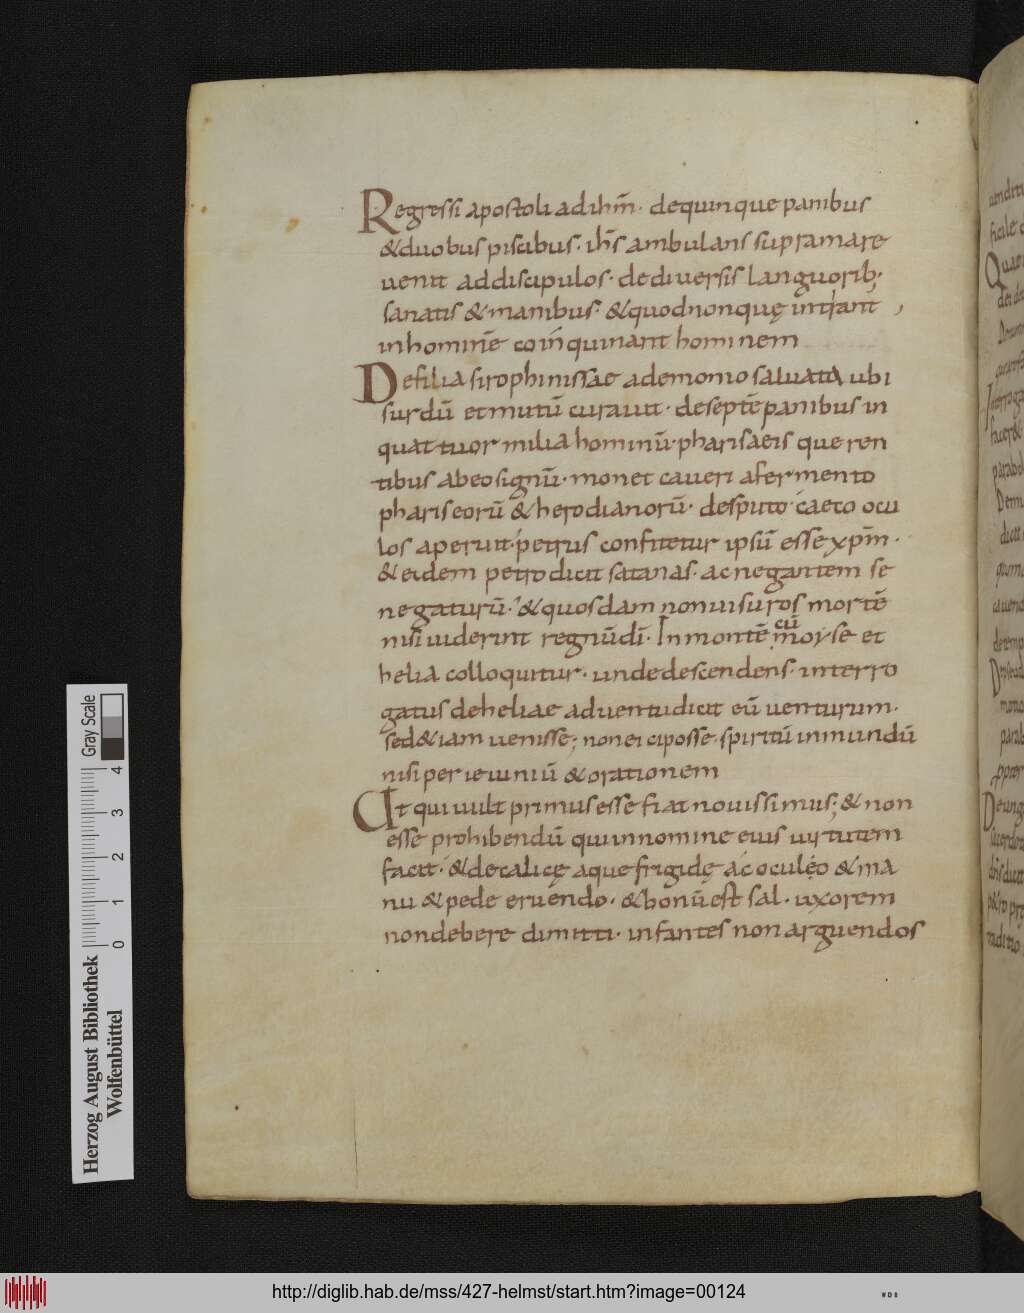 Regressi apostoli ad ihm̄· de quinque panibus
& duobus piscibus· ih̄s ambulans supra mare
uenit ad discipulos· de diuersis languorib;·
sanatis & manibus· & quod non quę intrant
in homine coinquinant hominem
De filia sirophinissae a demonio saluata ubi
surdū et mutū curauit· de septē panibus in
quattuor milia hominū· pharisaeis queren
tibus ab eo signū· monet caueri a fermento
phariseorū & herodianorū· desputo caeco ocu
los aperuit· petrus confitetur ipsū esse xpm̄·
& eidem petro dicit satanas· ac negantem se
negaturū· & quosdam non uisuros mortē
nisi uiderint regnū dī· In montē cū moyse et
helia colloquitur· unde descendens· interro
gatus de heliae aduentu dicit eū uenturum·
sed & iam uenisse; non eici posse· spiritū inmundū
nisi per ieiuniū & orationem
Ut qui uult primus esse fiat nouissimus; & non
esse prohibendū qui in nomine eius uirtutem
facit· & de calicę aque frigidę ac oculęo & ma
nu & pede eruendo· & bonū est sal· uxorem
non debere dimitti· infantes non arguendos
Gray Scale
4
3
2
1
0
Herzog August Bibliothek
Wolfenbüttel
http://diglib.hab.de/mss/427-helmst/start.htm?image=00124